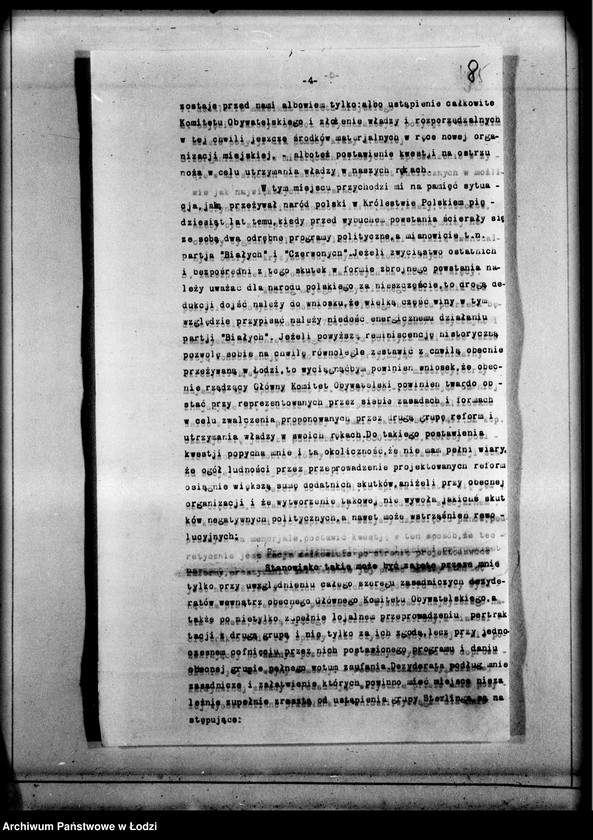 8
-4-
zostaje przed nami albowiem tylko:albo ustąpienie całkowite
Komitetu Obywatelskiego i złożenie władzy i rozporządzalnych
w tej chwili jeszcze środków materjalnych w ręce nowej orga-
nizacji miejskiej, - alboteż postawienie kwestji na ostrzu
noża w celu utrzymania władzy w naszych rękach.
W tym miejscu przychodzi mi na pamięć sytua-
cja,jaką przeżywał naród polski w Królestwie Polskiem pię-
dziesiąt lat temu,kiedy przed wybuchem powstania ścierały się
ze sobą dwa odrębne programy polityczne,a mianowicie t.n.
partja "Białych" i "Czerwonych".Jeżeli zwycięstwo ostatnich
i bezpośredni z tego skutek w formie zbrojnego powstania na-
leży uważać dla narodu polskiego za nieszczęście,to drogą de-
dukcji dojść należy do wniosku,że wielką część winy w tym
względzie przypisać należy niedość energicznemu działaniu
partji "Białych". Jeżeli powyższą reminiscencję historyczną
pozwolę sobie na chwilę równolegle zestawić z chwilą obecnie
przeżywaną w Łodzi,to wyciągnąćbym powinien wniosek,że obec-
nie rządzący Główny Komitet Obywatelski powinien twardo ob-
stać przy reprezentowanych przez siebie zasadach i formach
w celu zwalczenia proponowanych przez drugą grupę reform i
utrzymania władzy w swoich rękach.Do takiego postawienia
kwestji popycha mnie i ta okoliczność,że nie mam pełni wiary,
że ogół ludności przez przeprowadzenie projektowanych reform
osiągnie większą sumę dodatnich skutków,aniżeli przy obecnej
organizacji i że wytworzenie takowej nie wywoła jakichś skut
ków negatywnych politycznych,a nawet może wstrząśnień rewo-
lucyjnych:
Stanowisko takie może być zajęte przeze mnie
tylko przy uwzględnieniu całego szeregu zasadniczych dezyde-
ratów wewnątrz obecnego Głównego Komitetu Obywatelskiego,a
także po nietylko zupełnie lojalnem przeprowadzeniu pertrak
tacji z drugą grupą i nie tylko za ich zgodą,lecz przy jedno
czesnem cofnięciu przez nich postawionego programu i daniu
obecnej grupie pełnego wotum zaufania.Dezyderata podług mnie
zasadnicze i załatwienie których powinno mieć miejsce nieza
leżnie zupełnie zresztą od ustąpienia grupy Sterlinga są na
stępujące:
Archiwum Państwowe w Łodzi